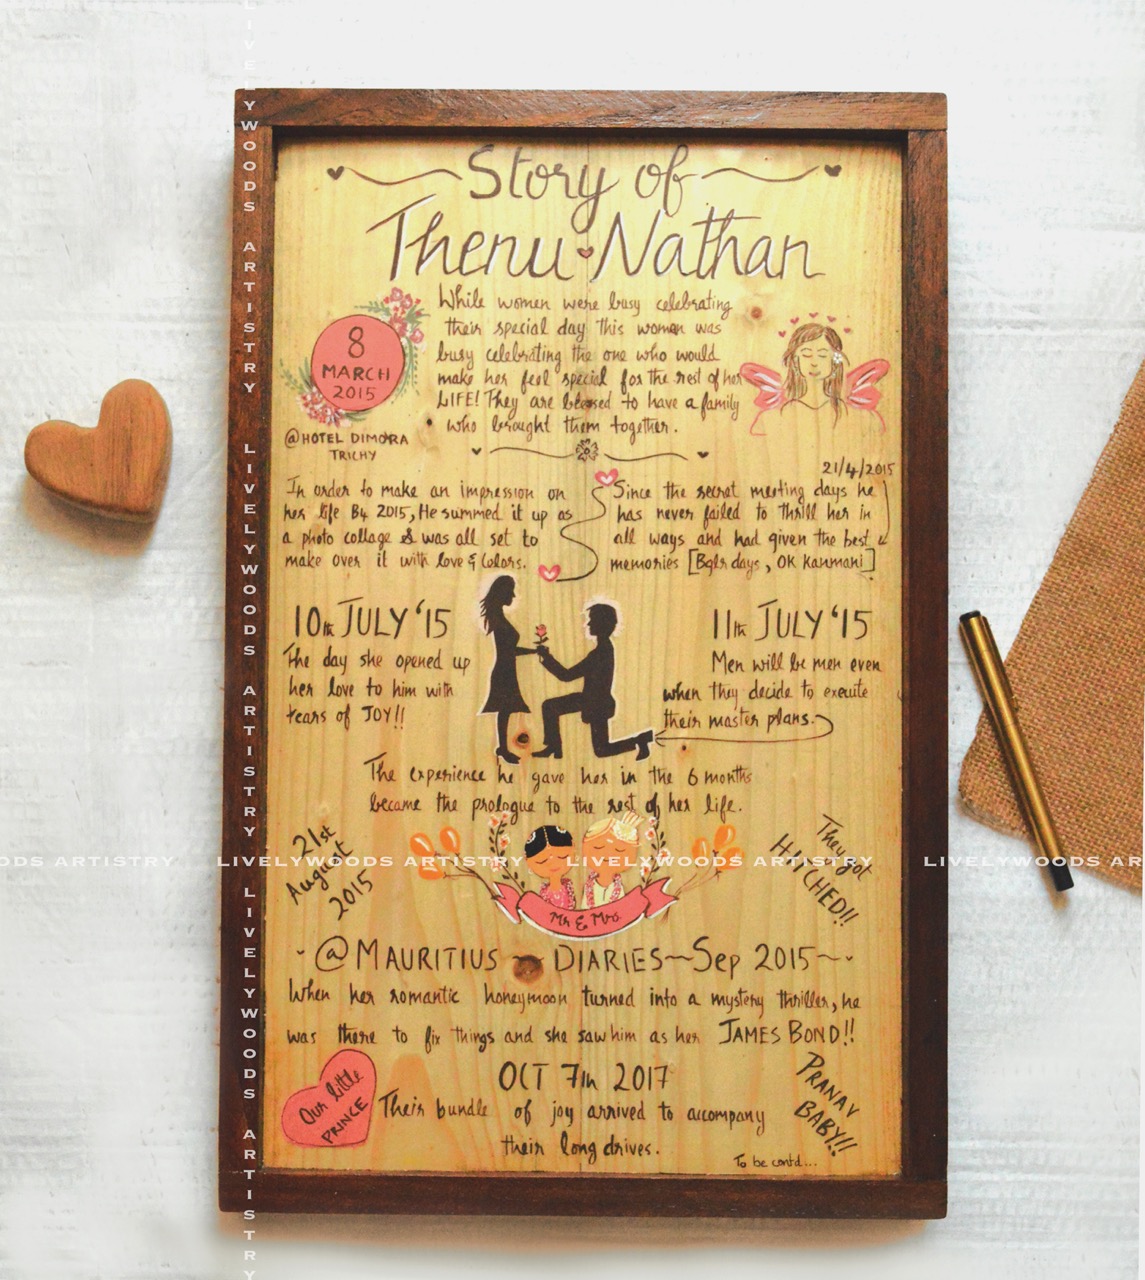 Story of
Thenu Nathan
8
MARCH
2015
@HOTEL DIMORA
TRICHY
While women were busy celebrating
their special day this woman was
busy celebrating the one who would
make her feel special for the rest of her
LIFE! They are blessed to have a family
who brought them together.
In order to make an impression on
her life By 2015, He summed it up as
a photo collage & was all set to
make over it with love & colors.
21/4/2015
Since the secret meeting days he
has never failed to thrill her in
all ways and had given the best
memories [Bglr days, OK Kanmani]
10th JULY '15
The day she opened up
her love to him with
tears of JOY!!
11th JULY '15
Men will be men even
when they decide to execute
their master plans.
The experience he gave her in the 6 months
became the prologue to the rest of her life.
21st
August
2015
Mr & Mrs.
They got
HITCHED!!
@MAURITIUS DIARIES~Sep 2015
When her romantic honeymoon turned into a mystery thriller, he
was there to fix things and she saw him as her JAMES BOND!!
OCT 7th 2017
Our little
PRINCE
Their bundle of joy arrived to accompany
their long drives.
PRANAV
BABY!!
To be contd...
LIVELYWOODS ARTISTRY LIVELYWOODS ARTISTRY LIVELYWOODS ARTISTRY LIVELYWOODS ARTISTRY
ODS ARTISTRY LIVELYWOODS ARTISTRY LIVELYWOODS ARTISTRY LIVELYWOODS AR